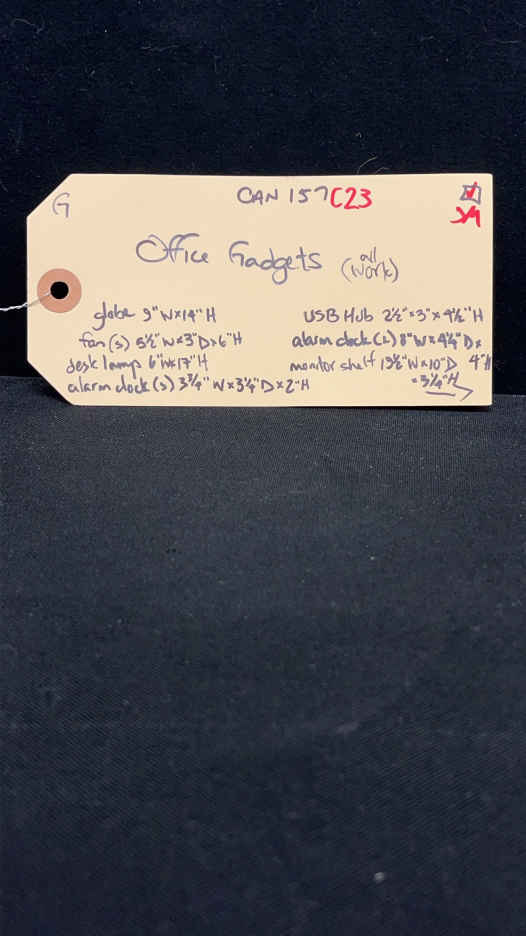 G
CAN 157 C23
Office Gadgets (all work)
globe 9" W x 14" H
fan (s) 5½" W x 3" D x 6" H
desk lamp 6" W x 17" H
alarm clock (s) 3¾" W x 3¼" D x 2" H
USB Hub 2½" x 3" x 4½" H
alarm clock (L) 8" W x 4¼" D x 4" H
monitor shelf 19½" W x 10" D
x 3¼" H